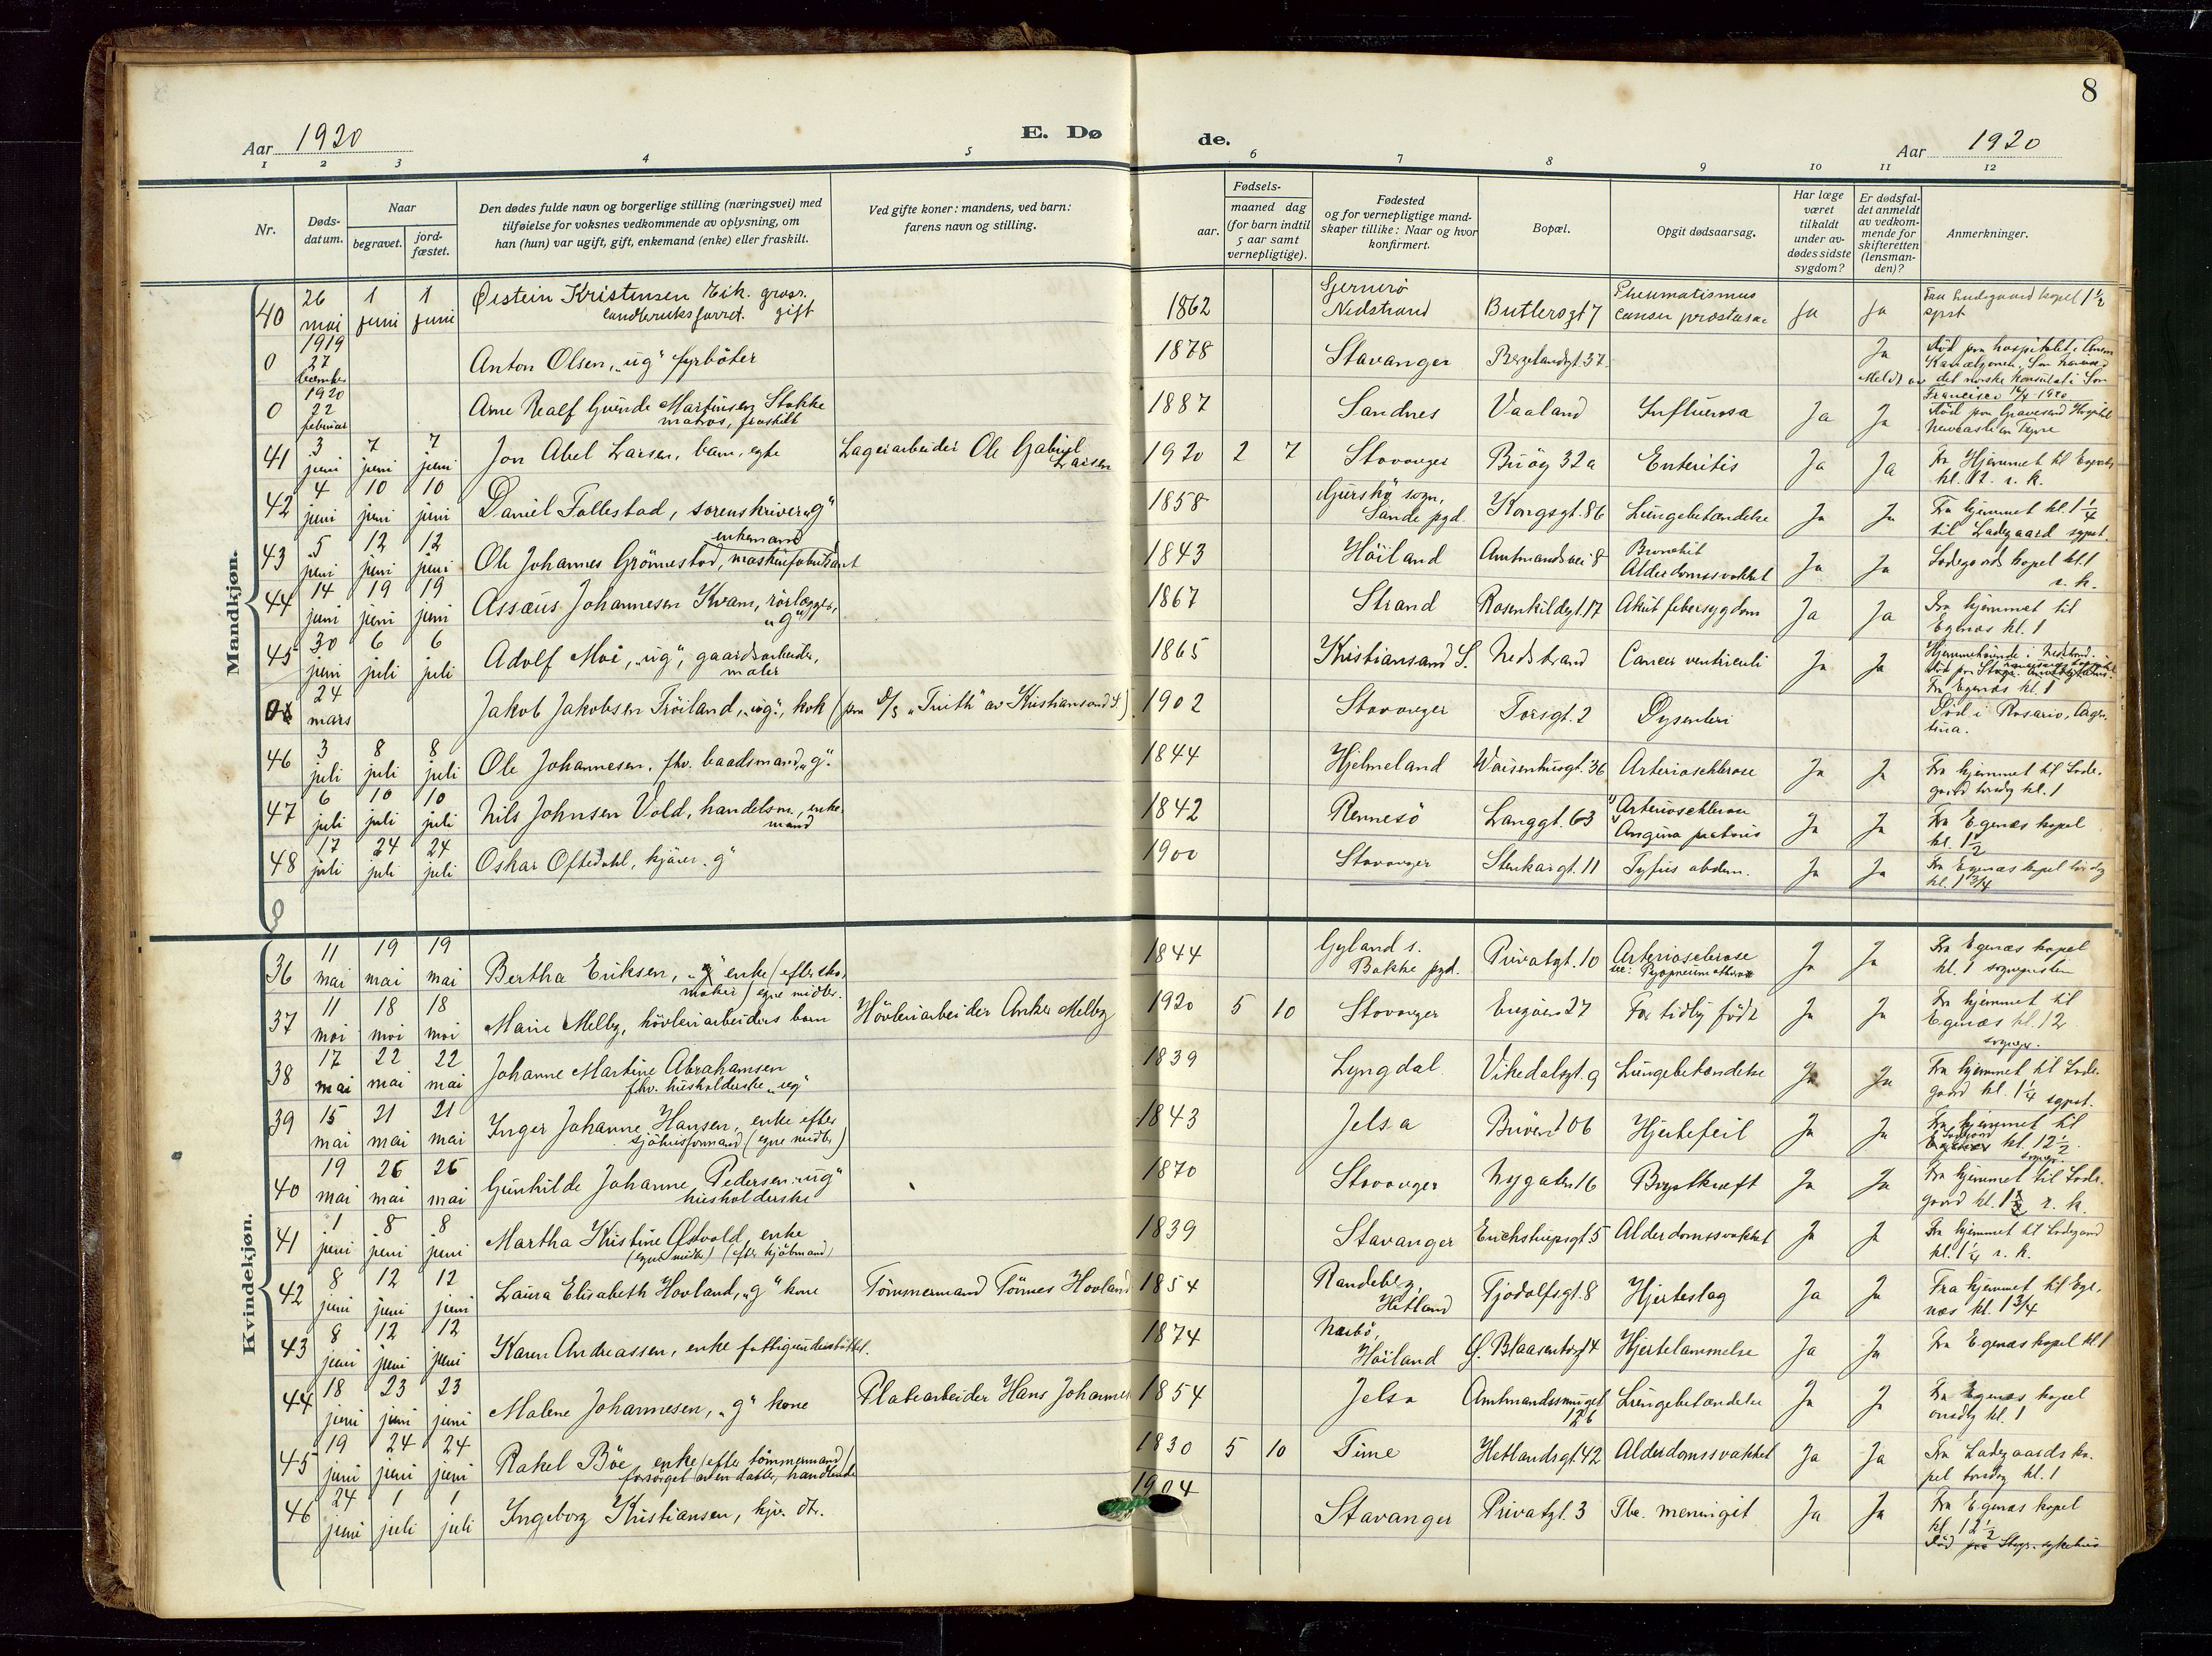 8
Aar 1920
E. Dø de.
Aar 1920
1 2 3 4 5 6 7 8 9 10 11 12
Nr.
Døds-
datum.
Naar
begravet.
jord-
fæstet.
Den dødes fulde navn og borgerlige stilling (næringsvei) med
tilføielse for voksnes vedkommende av oplysning, om
han (hun) var ugift, gift, enkemand (enke) eller fraskilt.
Ved gifte koner: mandens, ved barn:
farens navn og stilling.
Fødsels-
aar.
maaned dag
(for barn indtil
5 aar samt
vernepligtige).
Fødested
og for vernepligtige mand-
skaper tillike: Naar og hvor
konfirmert.
Bopæl.
Opgit dødsaarsag.
Har læge
været
tilkaldt
under av-
dødes sidste
sygdom?
Er dødsfal-
det anmeldt
av vedkom-
mende for
skifteretten
(lensman-
den)?
Anmerkninger.
Mandkjøn.
40 26 mai 1 juni 1 juni Øistein Kristensen Eik. gross.
gift 1862 Nedstrand Butlersgt 7 Rheumatismus
cancer prostatae Ja Ja
0 1919 27 Anton Olsen, "ug" fyrböter 1878 Stavanger Bergelandsgt. 37 Ja Död paa hospitalet
det norske konsulat i San
Francisco 1920
0 1920 22 februar Arne Realf Gunde Martinsen Stokke
matros, fraskilt 1887 Sandnes Vaaland Influensa Ja Ja Död paa Gravesend Hospital
Newcastle on Tyne
41 3 juni 7 juni 7 juni Jon Abel Larsen, barn, egte Lagerarbeider Ole Gabriel
Larsen 1920 2 7 Stavanger Buög 32a Enteritis Ja Ja Fra Hjemmet til Egenæs
kl. 12. r. k.
42 4 juni 10 juni 10 juni Daniel Follestad, sorenskriver "g" 1858 Gurskö sogn,
Sande pgd. Kongsgt. 86 Lungebetændelse Ja Ja Fra hjemmet kl. 1 1/4
til Ladegaard sgpst.
43 5 juni 12 juni 12 juni enkemand
Ole Johannes Grönnestad, maskinfabrikant 1843 Höiland Amtmandsvei 8 Bronchit
Alderdomssvakhet Ja Ja Ladegaards kapel kl. 1
r. k.
44 14 juni 19 juni 19 juni Assaus Johannesen Kvam, rörlægger,
"g" 1867 Strand Rosenkildegt. 17 Akut febersygdom Ja Ja Fra hjemmet til
Egenæs kl. 1
45 30 juni 6 juli 6 juli Adolf Moi, "ug", gaardsarbeider,
maler 1865 Kristiansand S. Nedstrand Cancer ventriculi Ja Ja Hjemmehörende i Nedstrand.
Fra Egenæs kl. 1
0 24 mars Jakob Jakobsen Tröiland, "ug", kok (paa d/s "Truth" av Kristiansand S.) 1902 Stavanger Torsgt. 2 Dysenteri Död i Rosario, Argen-
tina.
46 3 juli 8 juli 8 juli Ole Johannesen. fhv. baadsmand, "g". 1844 Hjelmeland Waisenhusgt. 36 Arterioschlerose Ja Ja Fra hjemmet til Lade-
gaard torsdag kl. 1
47 6 juli 10 juli 10 juli Nils Johnsen Vold, handelsm., enke-
mand 1842 Rennesö Langgt. 63 Arterioschlerose
Angina pectoris Ja Ja Fra Egenæs kapel
kl. 1 1/2
48 17 juli 24 juli 24 juli Oskar Oftedahl, kjörer "g" 1900 Stavanger Stenkargt. 11 Tyfus abdom. Ja Ja Fra Egenæs kapel lördag
kl. 1 3/4
Kvindekjøn.
36 11 mai 19 mai 19 mai Bertha Eriksen, enke (efter sko-
maker) egne midler. 1844 Gyland s.
Bakke pgd. Privatgt. 10 Arteriosclerose Ja Ja Fra Egenæs kapel
kl. 1 sognepresten
37 11 mai 18 mai 18 mai Marie Melby, hövleriarbeiders barn Hövleriarbeider Anker Melby 1920 5 10 Stavanger Engveien 27 For tidlig födt Ja Ja Fra hjemmet til
Egenæs kl. 12
sognepr.
38 17 mai 22 mai 22 mai Johanne Martine Abrahamsen
fhv. husholderske "ug" 1839 Lyngdal Vikedalsgt. 9 Lungebetændelse Ja Ja Fra hjemmet til Lade-
gaard kl. 1 1/4 sgpst.
39 15 mai 21 mai 21 mai Inger Johanne Hansen, enke efter
sjöhusformand (egne midler) 1843 Jelsa Buöveien 106 Hjertefeil Ja Ja Fra hjemmet til
kl. 12 1/2.
sognepr.
40 19 mai 26 mai 26 mai Gunhilde Johanne Pedersen "ug"
husholderske 1870 Stavanger Nygaten 16 Brystkræft Ja Ja Fra hjemmet til Lade-
gaard kl. 1 1/2 r. k.
41 1 juni 8 juni 8 juni Martha Kristine Østvold, enke
(egne midler) (efter kjöbmand) 1839 Stavanger Erichstrupsgt. 5 Alderdomssvakhet Ja Ja Fra hjemmet til Ladegaard
kl. 1 1/4 r. k.
42 8 juni 12 juni 12 juni Laura Elisabeth Hovland, "g" kone Tömmermand Tönnes Hovland 1854 Randeberg,
Hetland Tjodolfsgt. 8 Hjerteslag Ja Ja Fra hjemmet til Ege-
næs kl. 1 3/4
43 8 juni 12 juni 12 juni Karen Andreassen, enke fattigunderstöttet. 1874 Nærbö,
Höiland Ö. Blaasenborg 4 Hjertelammelse Ja Ja Fra Egenæs kapel kl. 1
44 18 juni 23 juni 23 juni Malene Johannesen, "g" kone Platearbeider Hans Johannes 1854 Jelsa Amtmandssmuget
12b Lungebetændelse Ja Ja Fra Egenæs kapel
onsdag kl. 1
45 19 juni 24 juni 24 juni Rakel Böe enke (efter tömmermand)
forsörget av en datter, handlende 1830 5 10 Time Hetlandsgt 42 Alderdomssvakhet Ja Ja Fra Ladegaards ka-
pel torsdag kl. 1
46 24 juni 1 juli 1 juli Ingeborg Kristiansen, kjv. dtr. 1904 Stavanger Privatgt. 3 Tbc. meningit Ja Ja Fra Egenæs kapel
kl. 12 1/2
Död paa Stvgr. sykehus